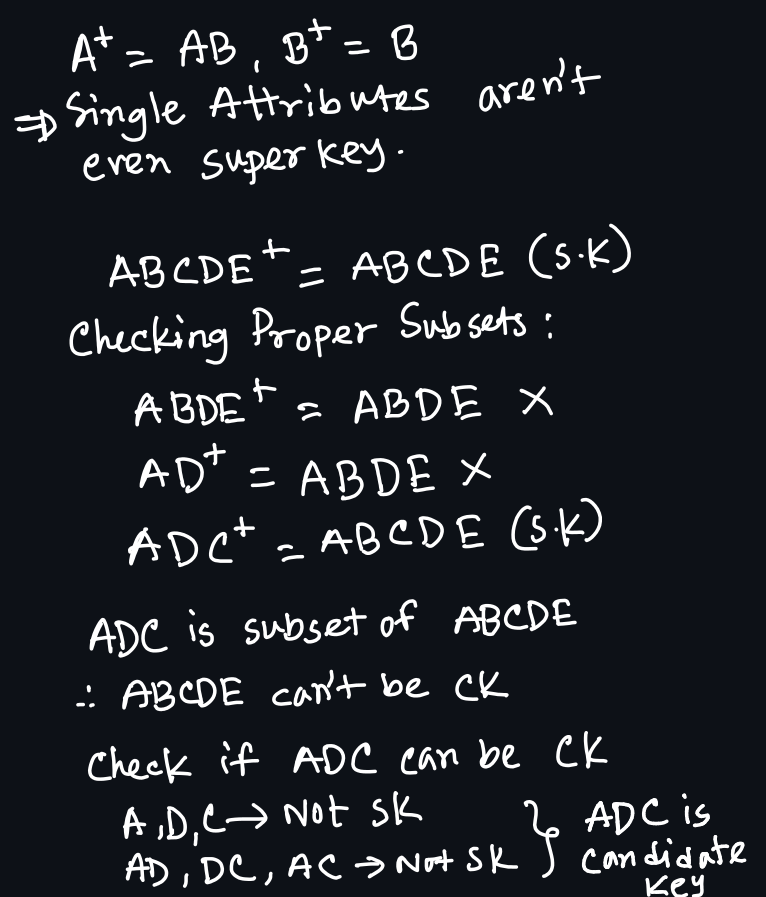 A⁺ = AB, B⁺ = B
⇒ Single Attributes aren't
even super key.
ABCDE⁺ = ABCDE (S.K)
Checking Proper Subsets :
ABDE⁺ = ABDE ×
AD⁺ = ABDE ×
ADC⁺ = ABCDE (S.K)
ADC is subset of ABCDE
∴ ABCDE can't be CK
Check if ADC can be CK
A,D,C → Not SK } ADC is
AD, DC, AC → Not SK } candidate
key